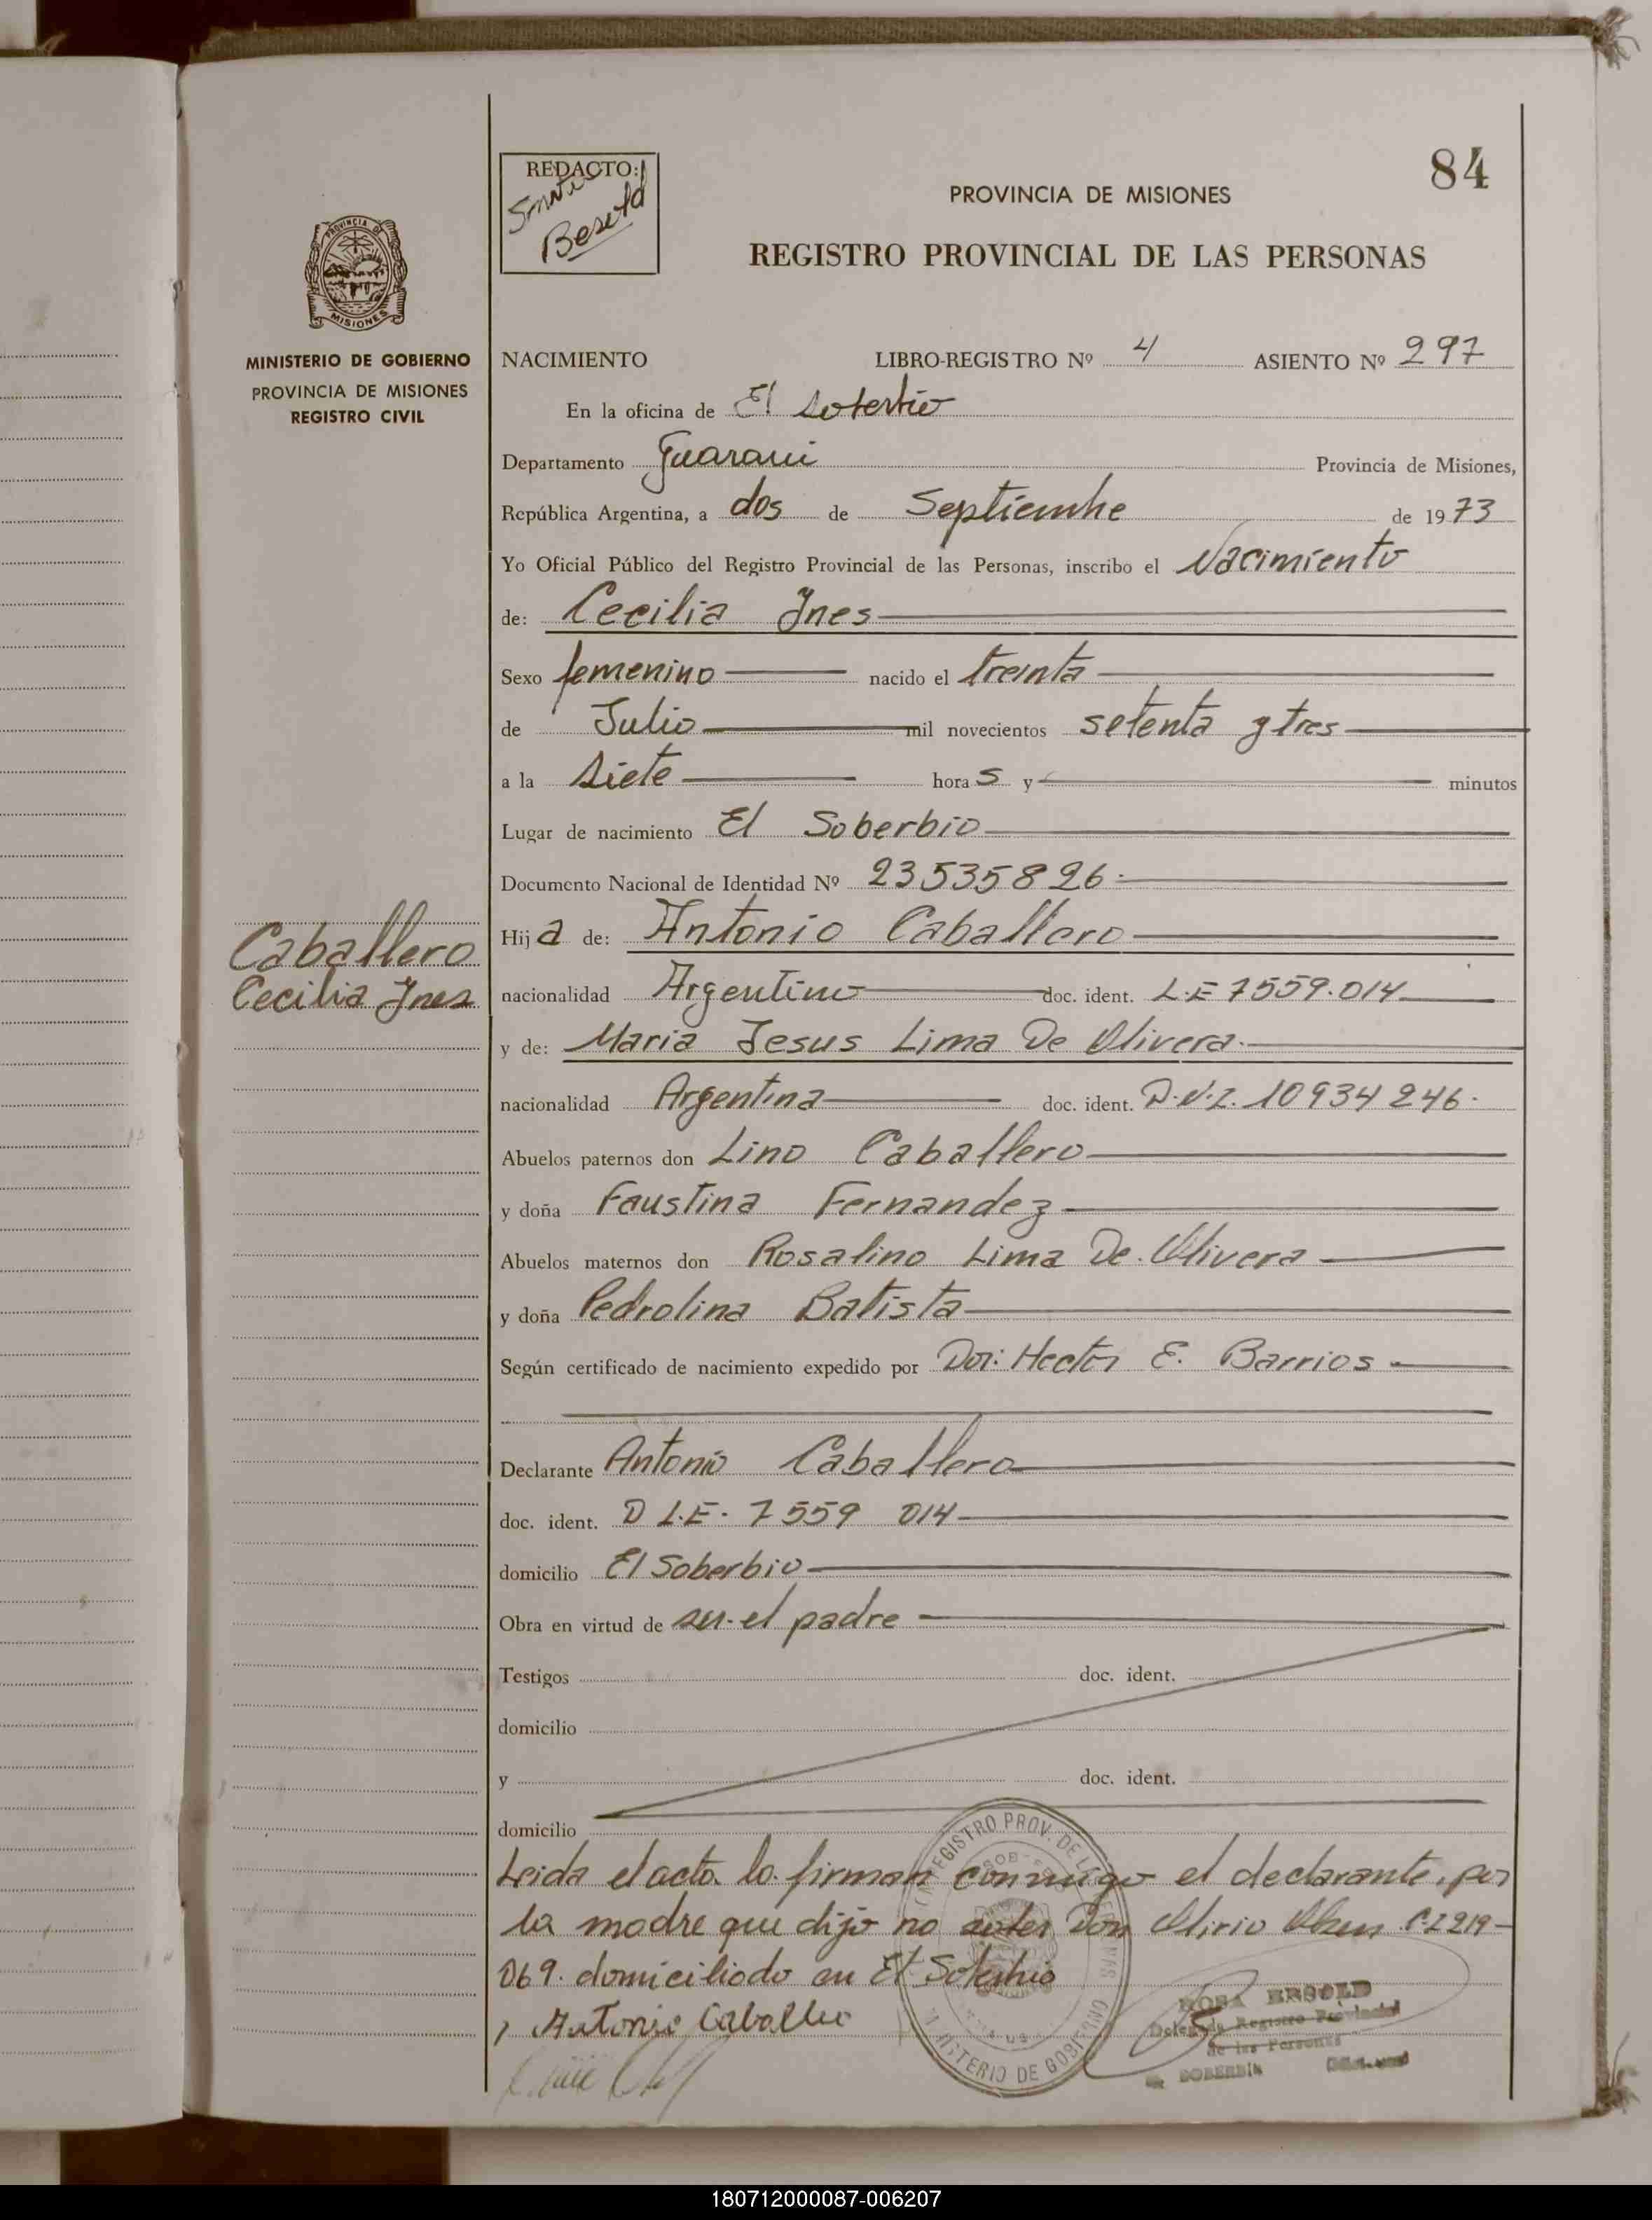 84
REDACTO:
Besold
PROVINCIA DE MISIONES
REGISTRO PROVINCIAL DE LAS PERSONAS
PROVINCIA DE
MISIONES
MINISTERIO DE GOBIERNO
PROVINCIA DE MISIONES
REGISTRO CIVIL
NACIMIENTO LIBRO-REGISTRO Nº 4 ASIENTO Nº 297
En la oficina de El Soberbio
Departamento Guarani Provincia de Misiones,
República Argentina, a dos de Septiembre de 1973
Yo Oficial Público del Registro Provincial de las Personas, inscribo el Nacimiento
de: Cecilia Ines
Sexo femenino nacido el treinta
de Julio mil novecientos setenta y tres
a la Siete horas y minutos
Lugar de nacimiento El Soberbio
Documento Nacional de Identidad Nº 23535826
Caballero
Cecilia Ines
Hija de: Antonio Caballero
nacionalidad Argentino doc. ident. L.E 7559.014
y de: Maria Jesus Lima De Olivera
nacionalidad Argentina doc. ident. D.N.I. 10934246
Abuelos paternos don Lino Caballero
y doña Faustina Fernandez
Abuelos maternos don Rosalino Lima De Olivera
y doña Pedrolina Batista
Según certificado de nacimiento expedido por Dor: Hector E. Barrios
Declarante Antonio Caballero
doc. ident. D L.E. 7559 014
domicilio El Soberbio
Obra en virtud de ser el padre
Testigos doc. ident.
domicilio
y doc. ident.
domicilio
Leida el acta lo firman conmigo el declarante, por
la madre que dijo no Don Olirio C.I 219-
069. domiciliado en El Soberbio
Antonio Caballero
REGISTRO PROV. DE LAS PERSONAS
MINISTERIO DE GOBIERNO
ROSA BESOLD
Delegada Registro Provincial
de las Personas
SOBERBIO
180712000087-006207